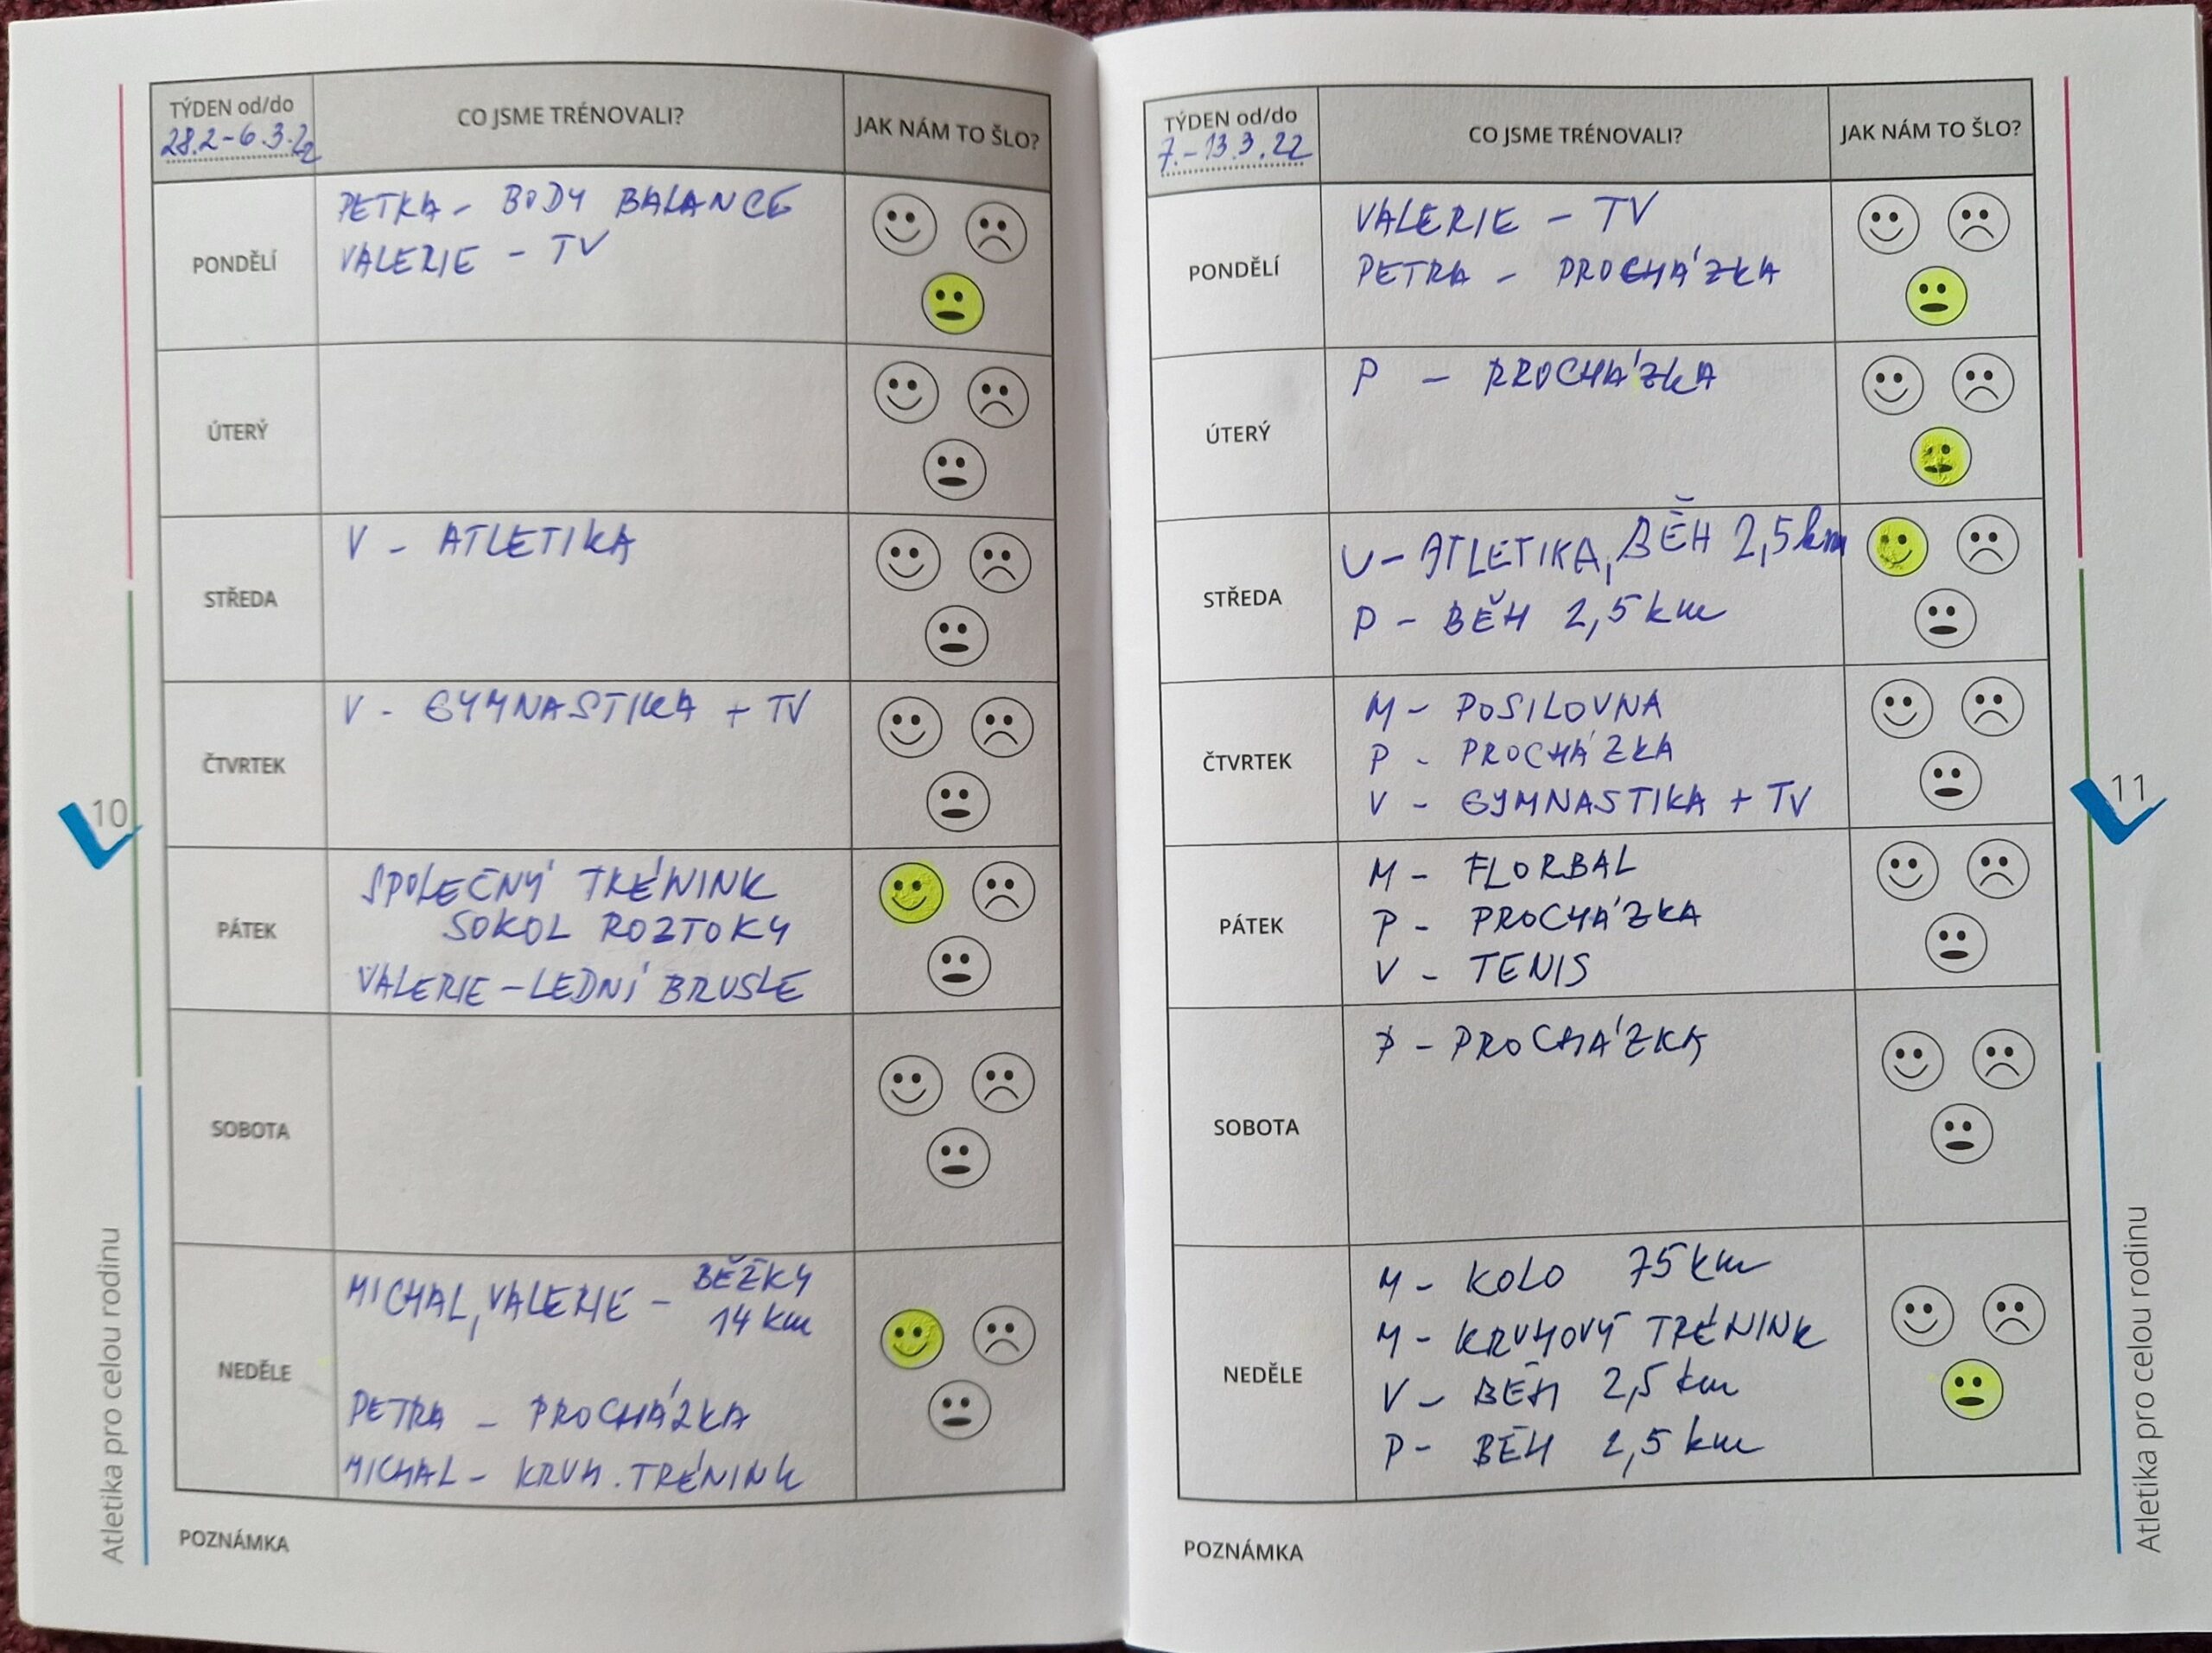 TÝDEN od/do
28.2-6.3.22
CO JSME TRÉNOVALI?
JAK NÁM TO ŠLO?
PONDĚLÍ
PETRA - BODY BALANCE
VALERIE - TV
ÚTERÝ
STŘEDA
V - ATLETIKA
ČTVRTEK
V - GYMNASTIKA + TV
PÁTEK
SPOLEČNÝ TRÉNINK
SOKOL ROZTOKY
VALERIE - LEDNÍ BRUSLE
SOBOTA
NEDĚLE
MICHAL, VALERIE - BĚŽKY
14 km
PETRA - PROCHÁZKA
MICHAL - KRUH. TRÉNINK
POZNÁMKA
10
Atletika pro celou rodinu
TÝDEN od/do
7.-13.3.22
CO JSME TRÉNOVALI?
JAK NÁM TO ŠLO?
PONDĚLÍ
VALERIE - TV
PETRA - PROCHÁZKA
ÚTERÝ
P - PROCHÁZKA
STŘEDA
V - ATLETIKA, BĚH 2,5 km
P - BĚH 2,5 km
ČTVRTEK
M - POSILOVNA
P - PROCHÁZKA
V - GYMNASTIKA + TV
PÁTEK
M - FLORBAL
P - PROCHÁZKA
V - TENIS
SOBOTA
P - PROCHÁZKA
NEDĚLE
M - KOLO 75 km
M - KRUHOVÝ TRÉNINK
V - BĚH 2,5 km
P - BĚH 2,5 km
POZNÁMKA
11
Atletika pro celou rodinu